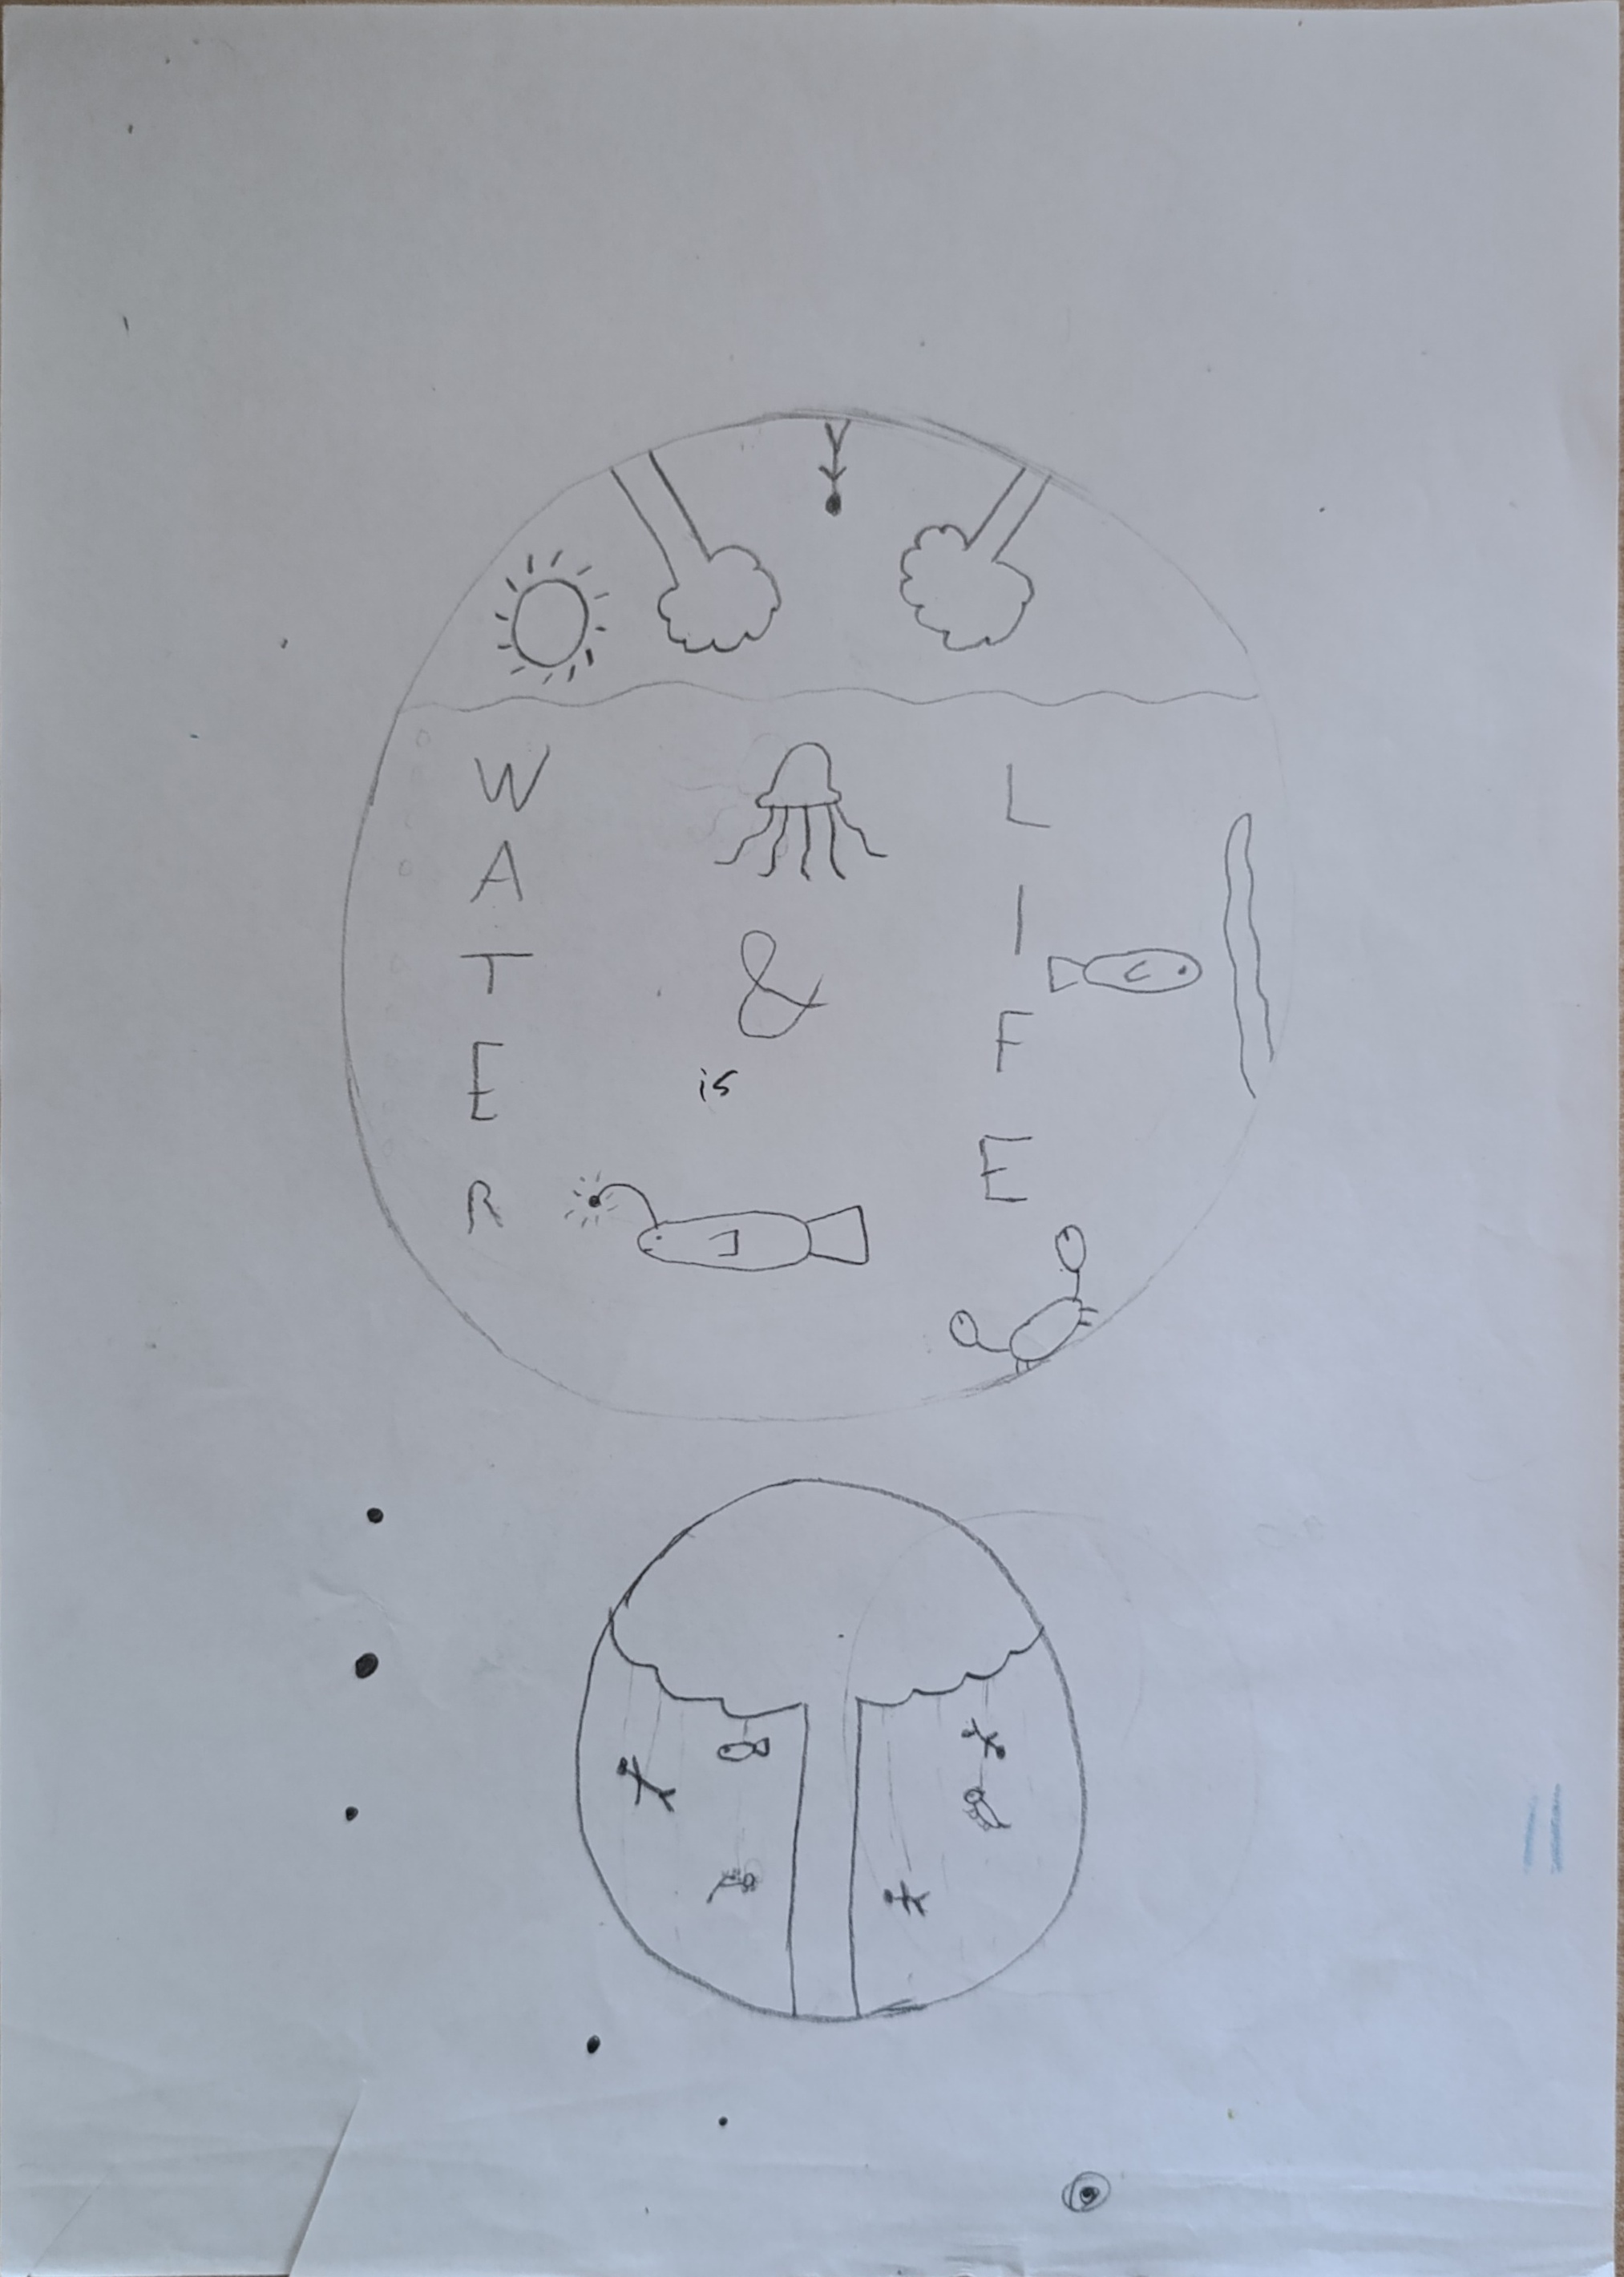 WATER
&
is
LIFE